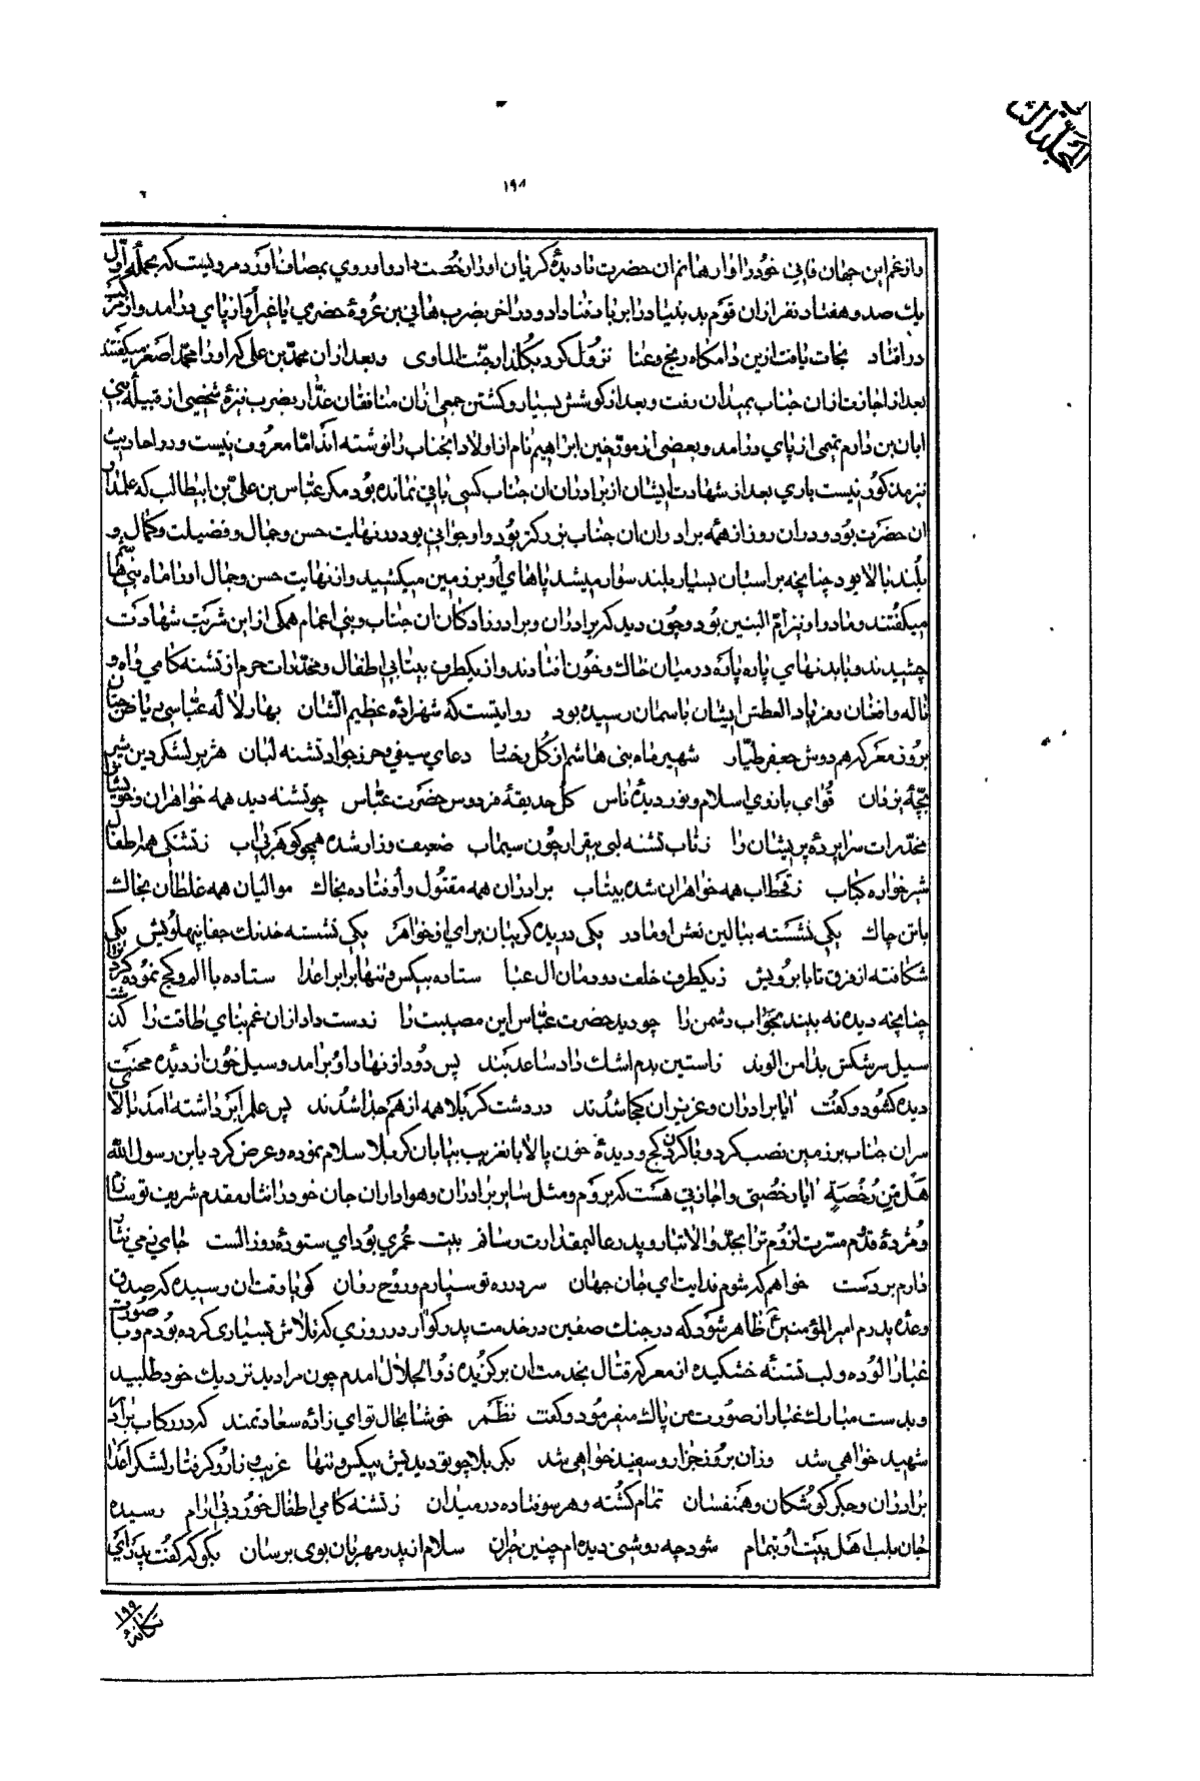 المجلد الثا
۱۹۸
و از غم این جهان فانی خود را وارهانم ان حضرت با دیدهٔ کریان او را رخصت داد و او روی بمصاف اورد مرویست که بحمله اول
یك صد و هفتاد نفر از ان قوم بد بنیاد را بر باد فنا داد و در اخر بضرب هانی بن عروهٔ حضرمی یا غیر او از پای درامد و از مرکب
در افتاد نجات یافت ازین دامکاه رنج و عنا نزول کرد بکلذار جنت الماوی و بعد از ان محمد بن علی که او را محمد اصغر میکفتند
بعد از اجازت از ان جناب بمیدان رفت و بعد از کوشش بسیار و کشتن جمعی از ان منافقان غدار بضرب نیزهٔ شخصی از قبیله بنی
ابان بن دارم تمیمی از پای درامد و بعضی از مورخین ابراهیم نام از اولاد انجناب را نوشته اند اما معروف نیست و در احادیث
نیز مذکور نیست باری بعد از شهادت ایشان از برادران ان جناب کسی باقی نمانده بود مکر عباس بن علی بن ابیطالب که علمدار
ان حضرت بود و در ان روز از همه برادران ان جناب بزرکتر بود و او جوانی بود در نهایت حسن و جمال و فضیلت و کمال و
بلند بالا بود چنانچه بر اسبان بسیار بلند سوار میشد پاهای او بر زمین میکشید و از نهایت حسن و جمال او را ماه بنی هاشم
میکفتند و مادر او نیز ام البنین بود و چون دید که برادران و برادرزادکان ان جناب و بنی اعمام همکی از این شربت شهادت
چشیدند و با بدنهای پاره پاره در میان خاك و خون افتادند و از یکطرف بیتابی اطفال و مخدرات حرم از تشنه کامی و اه و
ناله و افغان و فریاد العطش ایشان باسمان رسیده بود روایتست که شهزادهٔ عظیم الشان بهار لاله عباسی ریاض جنان
بروز معرکه هم دوش جعفر طیار شهیر ماه بنی هاشم از کل رخسار دعای سیفی و حرز جواد تشنه لبان هژبر لشکر دین شیر
بچهٔ یزدان قوای بازوی اسلام و نور دیدهٔ ناس کل حدیقهٔ فردوس حضرت عباس چو تشنه دید همه خواهران و خویشان
مخدرات سراپردهٔ پریشان را ز تاب تشنه لبی بیقرار چون سیماب ضعیف و زار شده همچو کوهر بی اب ز تشنکی همه اطفال
شیرخواره کباب ز قحطاب همه خواهران شده بیتاب برادران همه مقتول و اوفتاده بخاك موالیان همه غلطان بخاك
با تن چاك یکی نشسته ببالین نعش او مادر یکی دویده کریبان برای او خواهر یکی نشسته خدنك جفا بپهلویش یکی
شکافته از فرق تا بابرویش ز یکطرف خلف دودمان ال عبا ستاده بیکس و تنها برابر اعدا ستاده با الم و کج نموده کردن
چنانچه دیده نه بیند بخواب دشمن را چو دید حضرت عباس این مصیبت را ز دست داد از ان غم بنای طاقت را کذشت
سیل سرشکش بدامن الوند ز استین بدم اشك داد ساعد بند پس دود از نهاد او برامد و سیل خون از دیدهٔ محنت
دیده کشود و کفت ایا برادران و عزیزان کجا شدند در دشت کربلا همه از هم جدا شدند پس علم را برداشته امد بالای
سر ان جناب بر زمین نصب کرد و با کردن کج و دیدهٔ خون پالا بان غریب بیابان کربلا سلام نموده و عرض کرد یابن رسول الله
هل من رخصة ایا رخصتی و اجازتی هست که بروم و مثل سایر برادران و هواداران جان خود را نثار مقدم شریف تو سازم
و مژدهٔ قدوم مسرت لزوم ترا بجد والاتبار و پدر عالیمقدارت رسانم بیت عمری بود ای ستودهٔ روز الست جانی ز پی نثار
دارم بر دست خواهم که شوم فدایت ای جان جهان سر در ره تو سپارم و روح روان کویا وقت ان رسیده که صدق
وعده پدرم امیرالمؤمنین ظاهر شود که در جنك صفین در خدمت پدر بزرکوار در روزی که تلاش بسیاری کرده بودم و با صورت
غبار الوده و لب تشنهٔ خشکیده از معرکه قتال بخدمت ان برکزیده ذو الجلال امدم چون مرا دید نزدیك خود طلبید
و بدست مبارك غبار از صورت من پاك میفرمود و کفت نظم خوشا بحال تو ای زادهٔ سعادتمند که در رکاب برادر
شهید خواهی شد وز ان بروز جزا رو سفید خواهی شد بکربلا چو تو دیدیش بیکس و تنها غریب و زار و کرفتار لشکر اعدا
برادران و جکر کوشکان و همنفسان تمام کشته و هر سو فتاده در میدان ز تشنه کامی اطفال خورد بی ارام رسیده
جان بلب اهل بیت او بتمام شود چه روشنی دیده ام چنین جران سلام از پدر مهربان بوی برسان بکو که کفت پدر ای
یکانه
۱۹۹